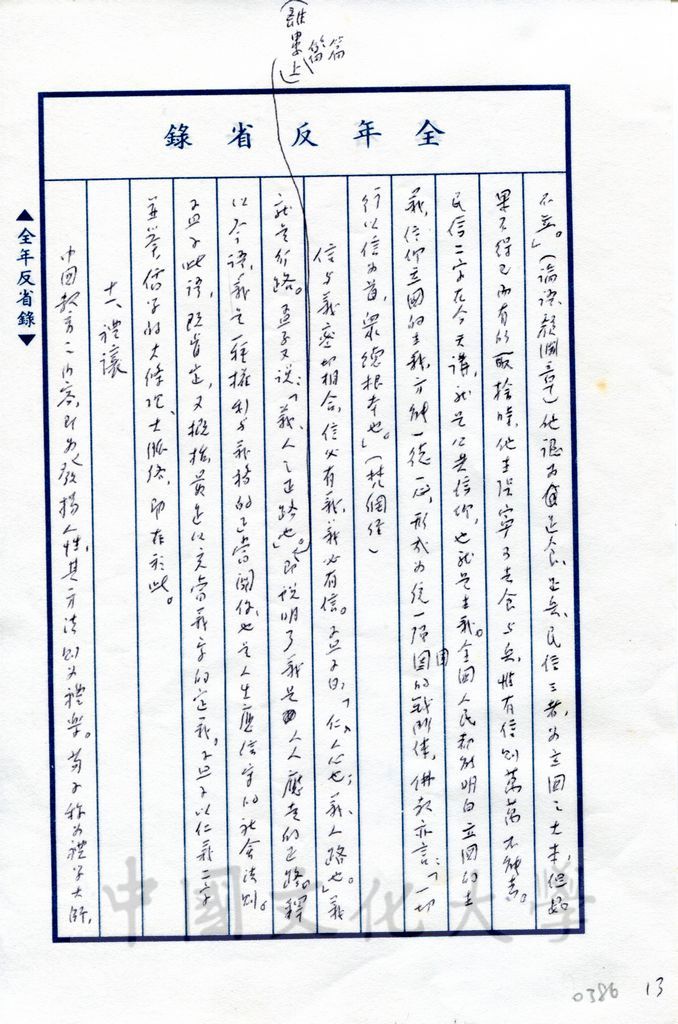 (離婁上)篇
全年反省錄
▲全年反省錄▼
不立。」(論語顏淵章)他認為足食、足兵、民信三者,為立國之大本,但如
果不得已而有所取捨時,他主張寧可去食与兵,惟有信則萬萬不能去。
民信二字在今天講,就是公共信仰,也就是主義。全國人民都能明白立國的主
義,信仰立國的主義,方能一德一心,形成為統一強固的戰鬥體,佛教亦言:「一切
行以信為首,眾德根本也。」(梵網經)
信与義密切相合,信必有義,義必有信。孟子曰:「仁、人心也;義、人路也。」義
就是行路。孟子又說:「義、人之正路也」。即說明了義是人人應走的正路。釋
以今語,義是一種權利与義務的正當關係,也是人生應信守的社會法則。
孟子此語,既肯定,又概括,最足以充當義字的定義。孟子以仁義二字
並舉,儒學的大條理、大脈絡,即在於此。
十六、禮讓
中國教育之內容,即為發揚人性,其方法則為禮樂。荀子稱為禮學大師,
中國文化大學
0386 13